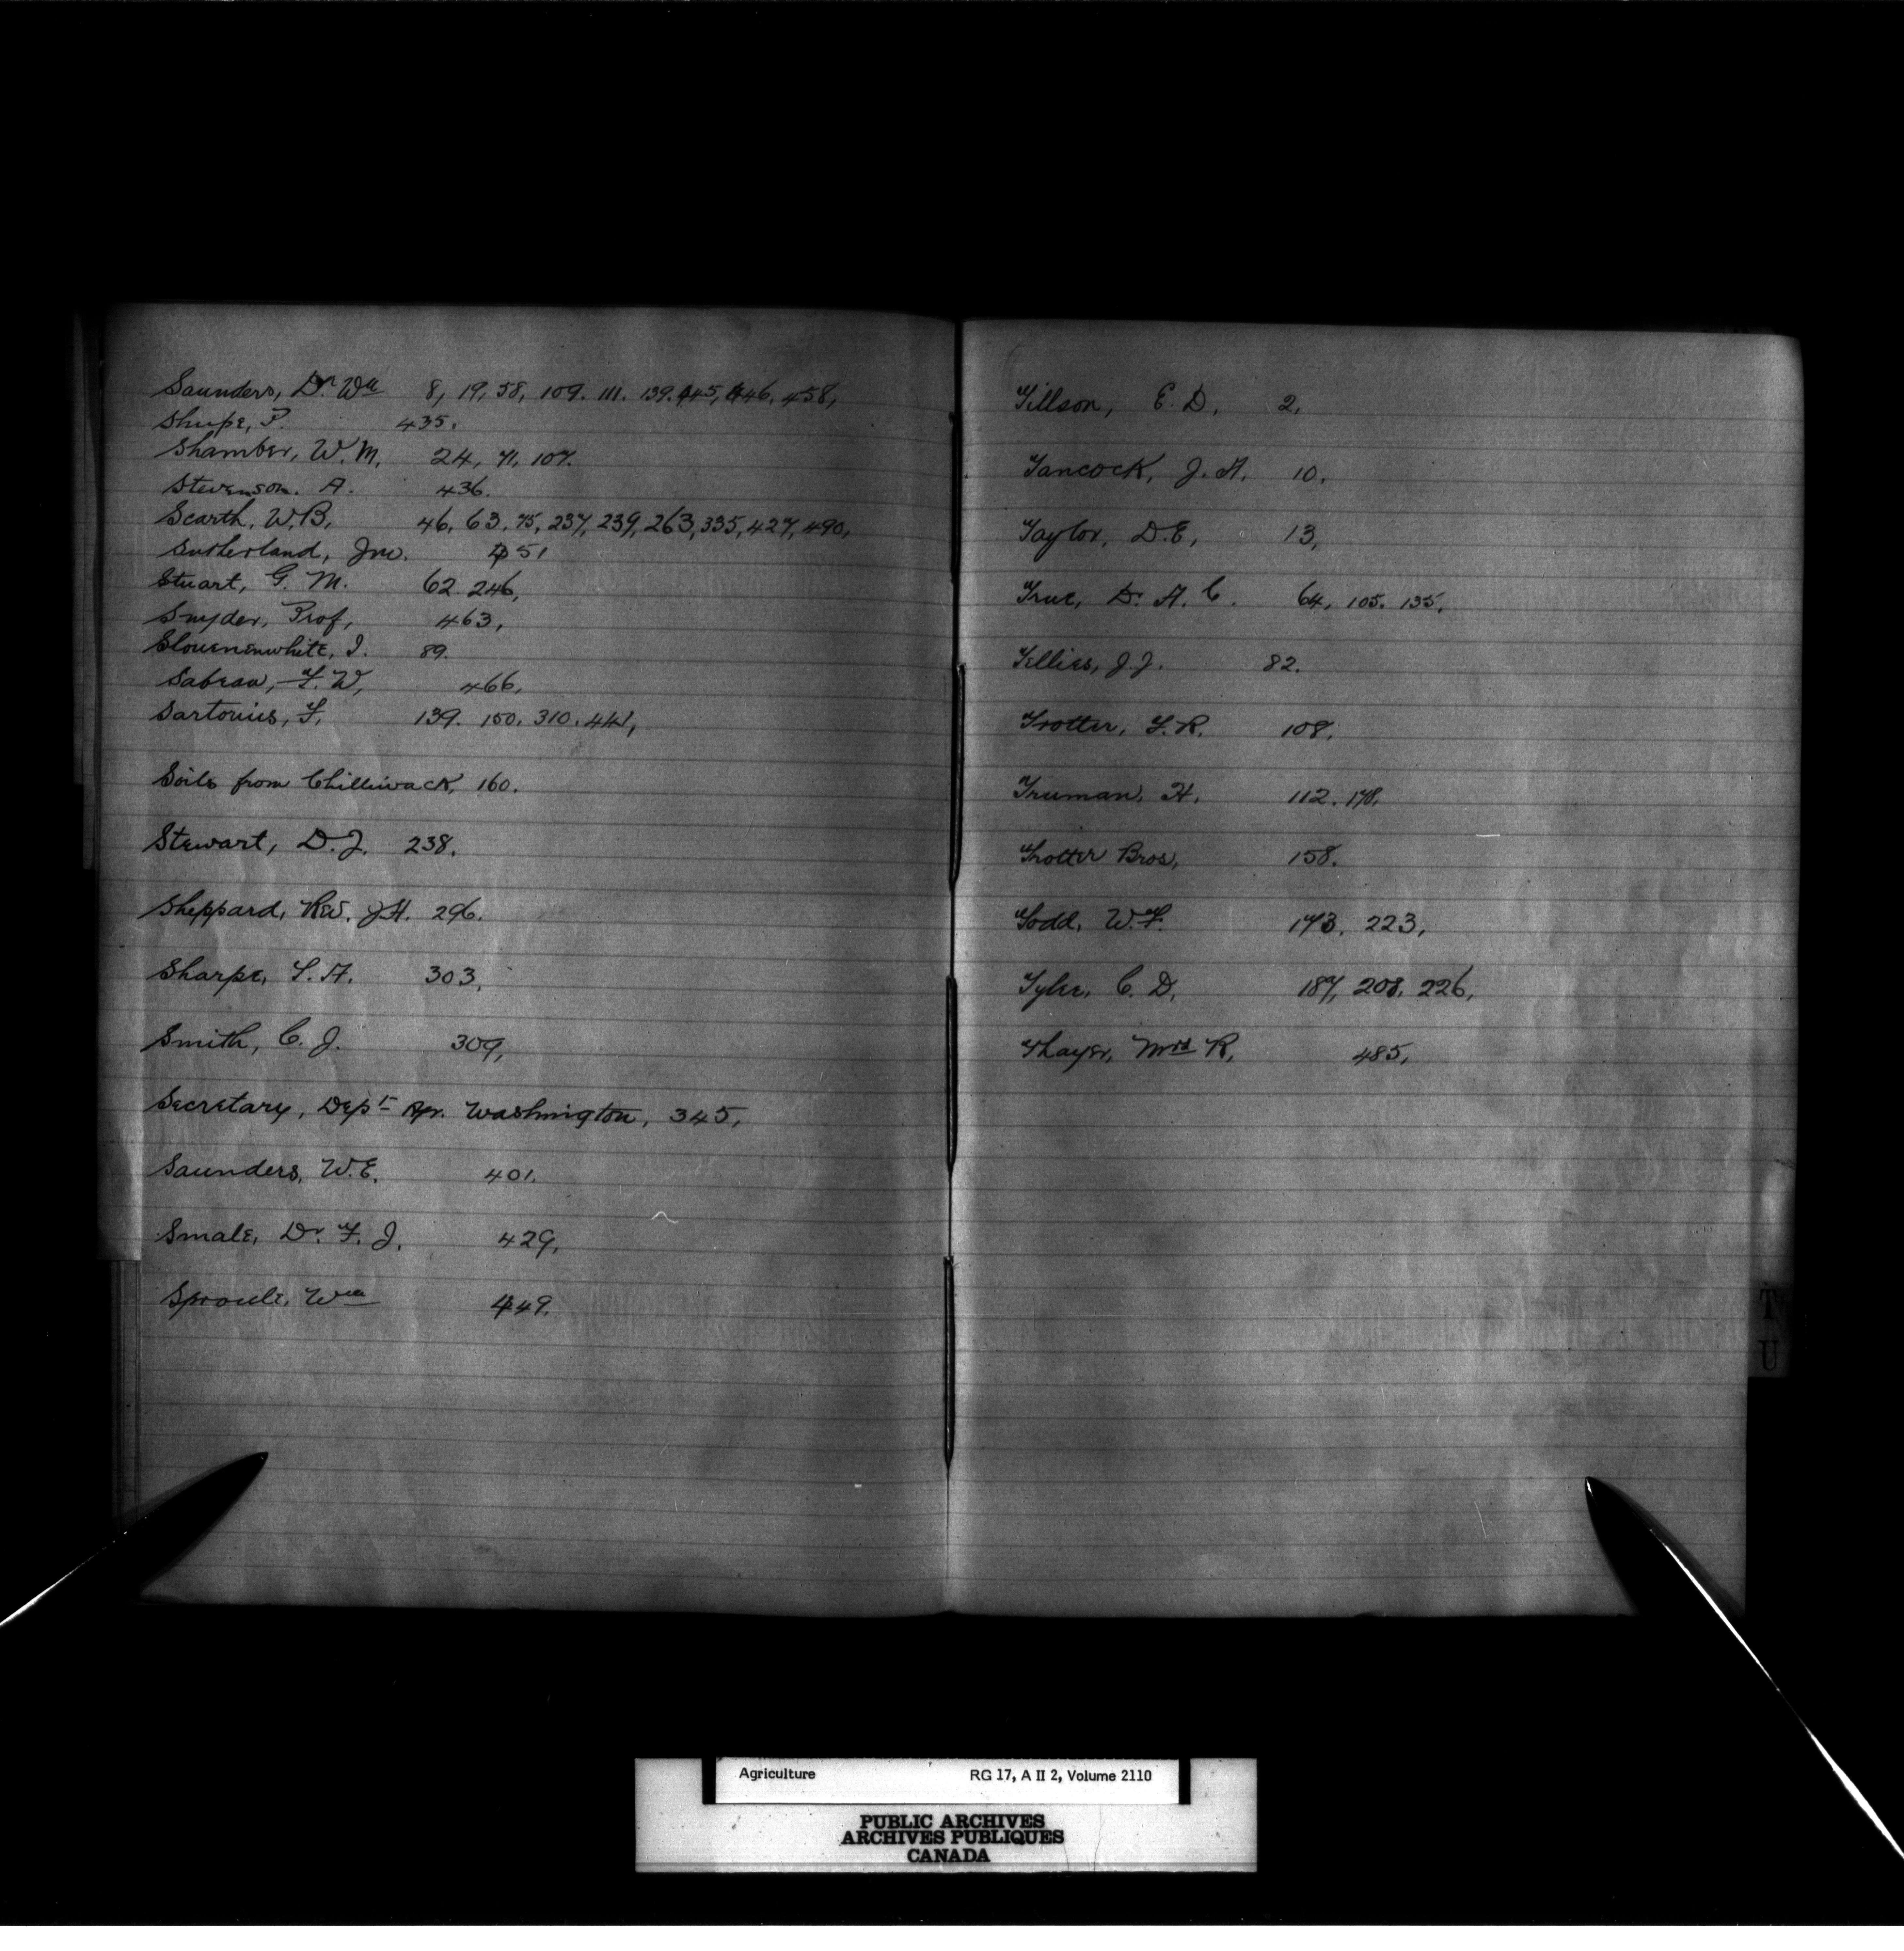 Saunders, Dr. Wm 8, 19, 58, 109. 111. 139. 445, 446, 458,
Shupe, P. 435.
Shamber, W. M. 24, 71, 107.
Stevenson. A. 436.
Scarth, W. B. 46, 63, 75, 237, 239, 263, 335, 427, 490,
Sutherland, Jno. 451
Stuart, G. M. 62. 246,
Snyder, Prof, 463,
89.
466,
139. 150. 310. 441,
Soils from Chilliwack, 160.
Stewart, D. J. 238.
Sheppard, Rev. J. H. 296.
Sharpe, T. A. 303,
Smith, C. J. 309,
Secretary, Dept Agr. Washington, 345,
Saunders, W. E. 401.
Smale, Dr. F. J. 429,
Sproule, Wm 449.
Tillson, E. D, 2,
Tancock, J. A. 10.
Taylor, D. E, 13,
True, Dr. A. C. 64, 105. 135,
Tellies, J. J. 82.
Trotter, F. R. 108.
Truman, H. 112. 178.
Trotter Bros, 158.
Todd, W. F. 173, 223,
187, 208, 226,
Thayer, Mrs R, 485,
T
U
Agriculture RG 17, A II 2, Volume 2110
PUBLIC ARCHIVES
ARCHIVES PUBLIQUES
CANADA